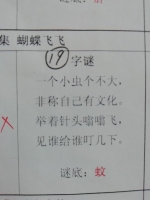 集 蝴蝶飞飞
19 字谜
一个小虫个不大，
非称自己有文化。
举着针头嗡嗡飞，
见谁给谁叮几下。
谜底：蚊